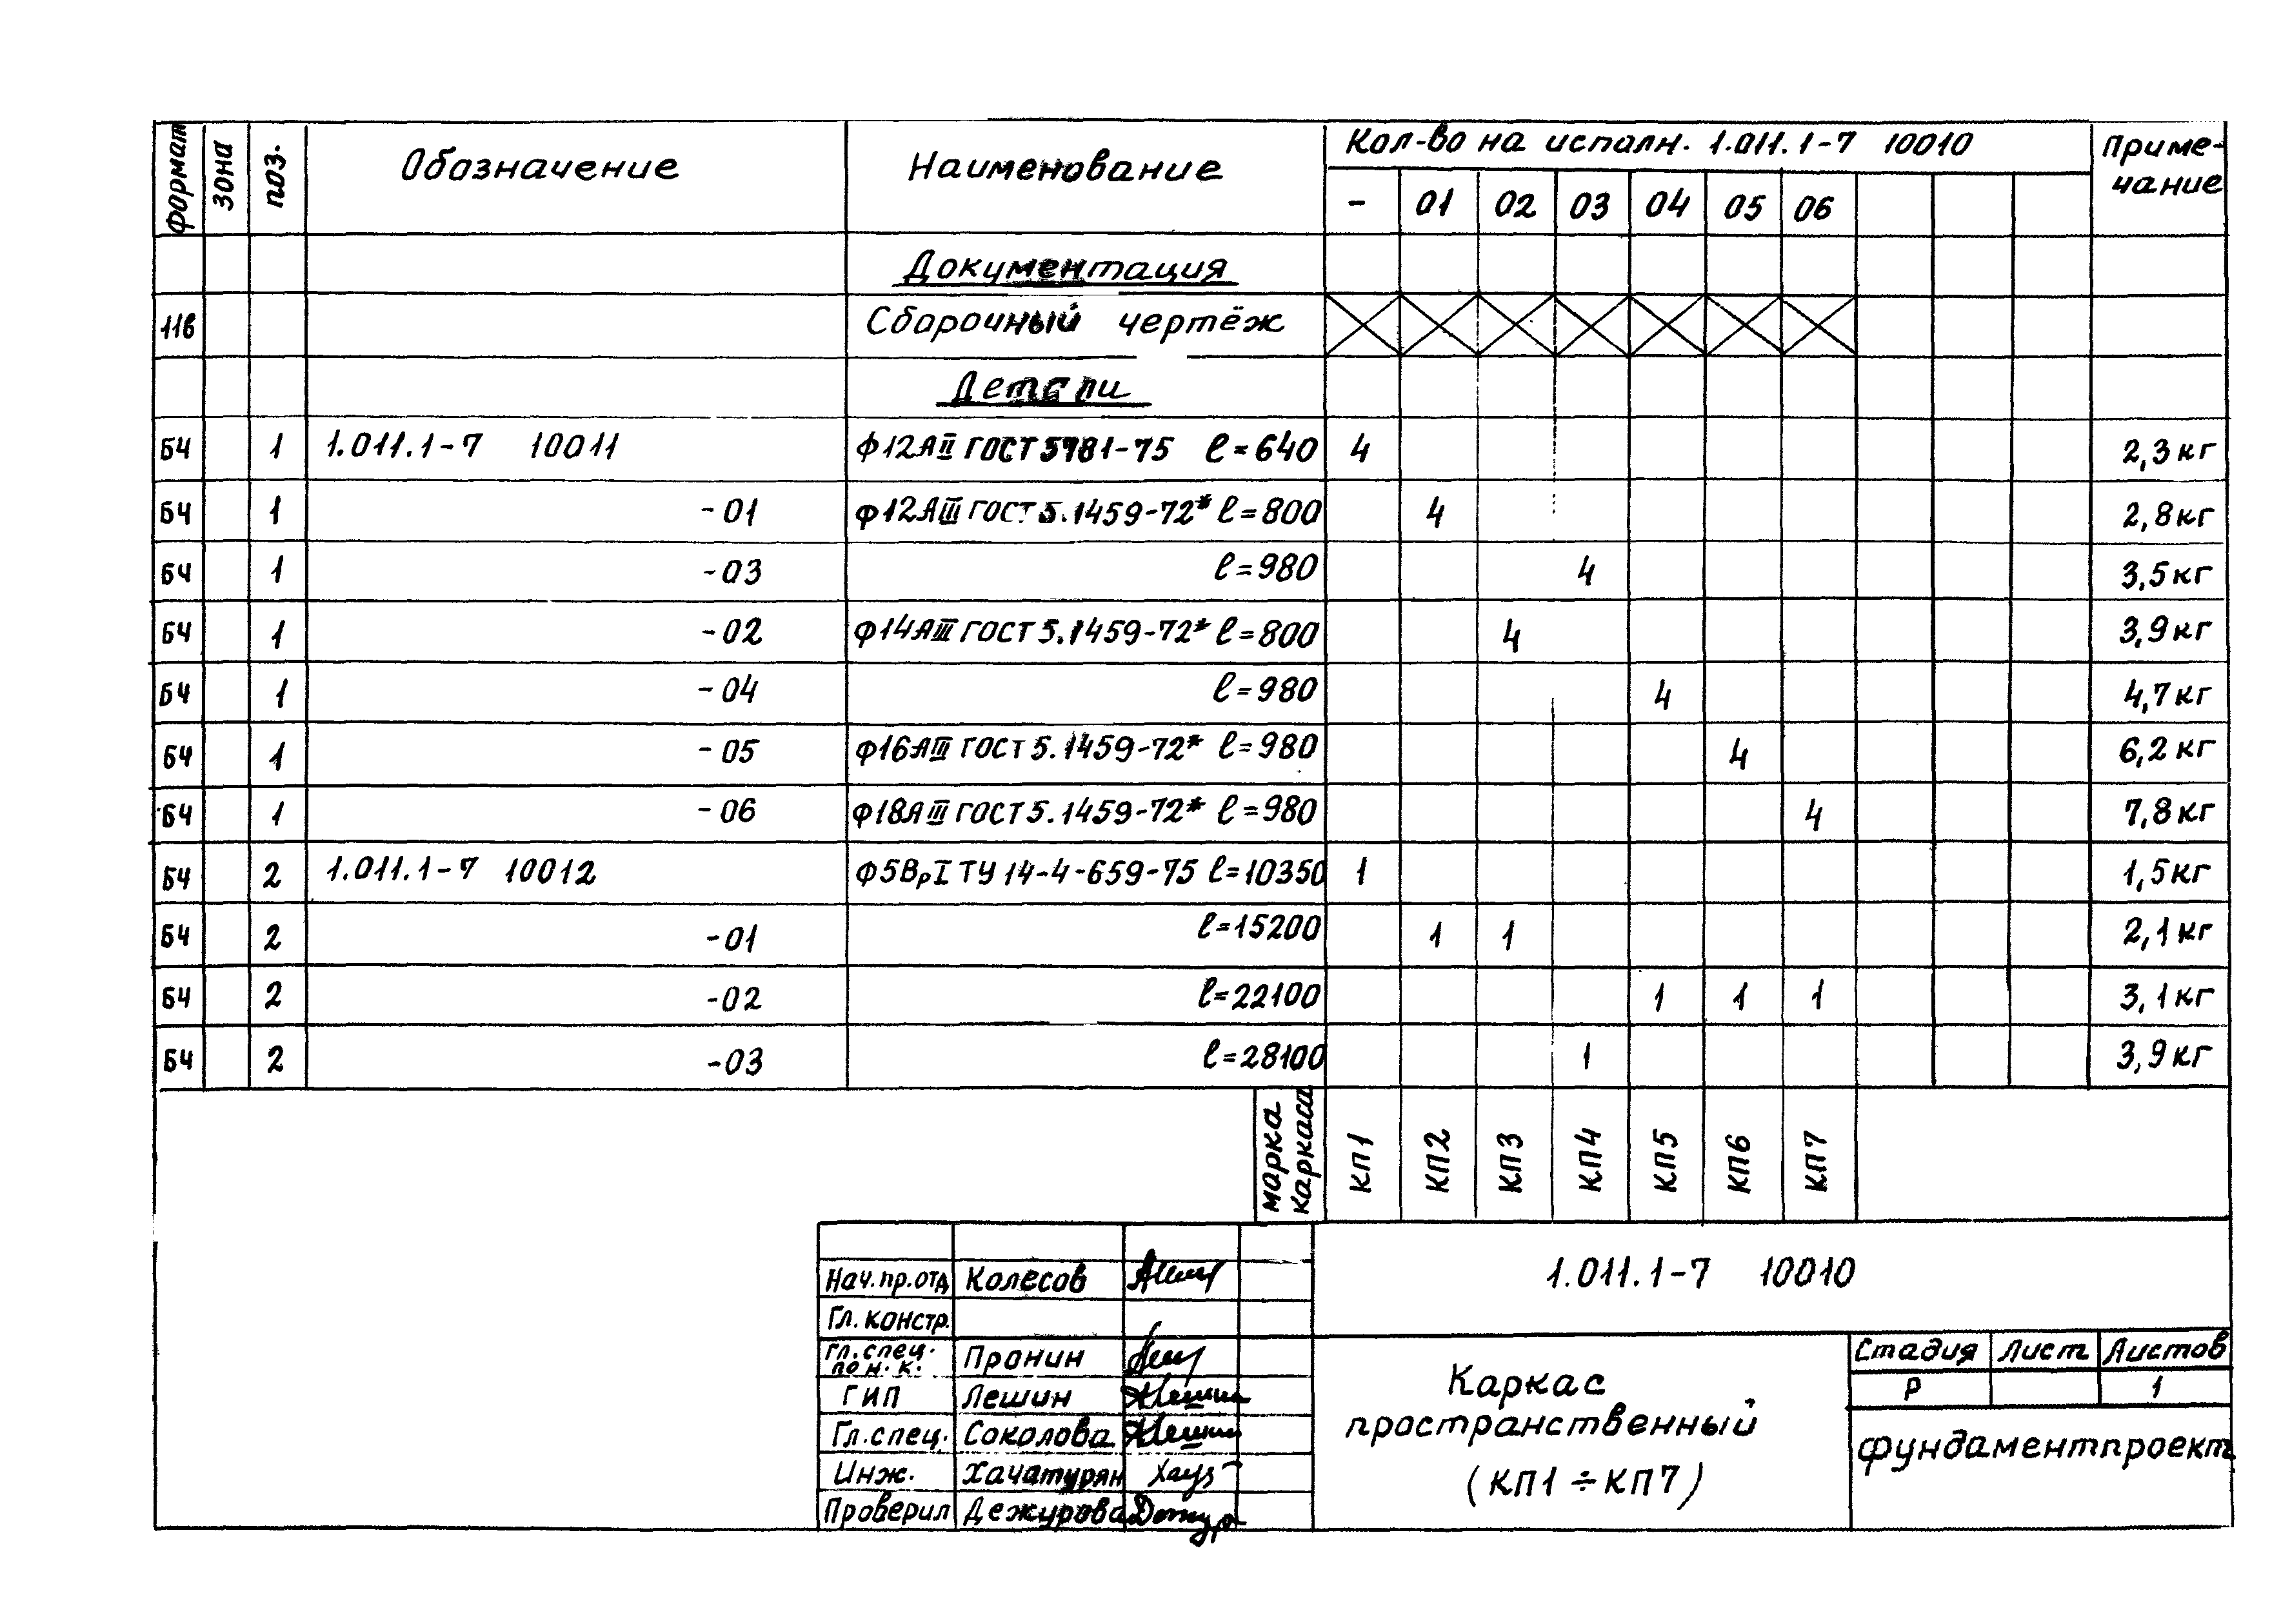 формат зона поз. Обозначение Наименование Кол-во на исполн. 1.011.1-7 10010 Приме-
чание
- 01 02 03 04 05 06
Документация
11в Сборочный чертёж
Детали
БЧ 1 1.011.1-7 10011 Ф12АII ГОСТ 5781-75 ℓ=640 4 2,3кг
БЧ 1 -01 Ф12АIII ГОСТ 5.1459-72* ℓ=800 4 2,8кг
БЧ 1 -03 ℓ=980 4 3,5кг
БЧ 1 -02 Ф14АIII ГОСТ 5.1459-72* ℓ=800 4 3,9кг
БЧ 1 -04 ℓ=980 4 4,7кг
БЧ 1 -05 Ф16АIII ГОСТ 5.1459-72* ℓ=980 4 6,2кг
БЧ 1 -06 Ф18АIII ГОСТ 5.1459-72* ℓ=980 4 7,8кг
БЧ 2 1.011.1-7 10012 Ф5ВрI ТУ 14-4-659-75 ℓ=10350 1 1,5кг
БЧ 2 -01 ℓ=15200 1 1 2,1кг
БЧ 2 -02 ℓ=22100 1 1 1 3,1кг
БЧ 2 -03 ℓ=28100 1 3,9кг
марка
каркаса
КП1 КП2 КП3 КП4 КП5 КП6 КП7
Нач.пр.отд Колесов
Гл. констр.
Гл.спец.
по н. к. Пронин
ГИП Лешин
Гл.спец. Соколова
Инж. Хачатурян
Проверил Дежурова
1.011.1-7 10010
Каркас
пространственный
(КП1÷КП7)
Стадия Лист Листов
Р 1
фундаментпроект